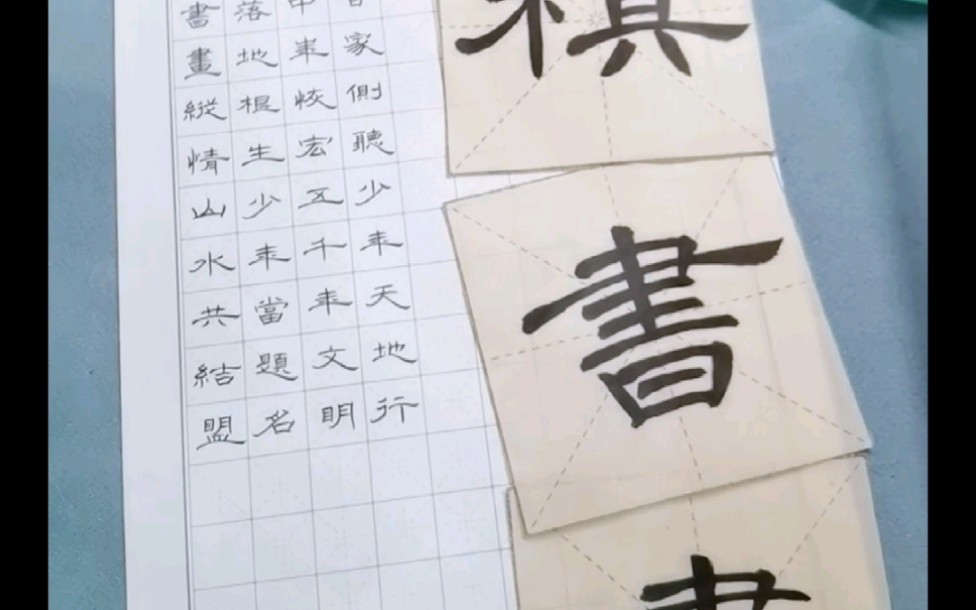 家側聽少年天地行
中年恢宏五千年文明
落地根生少年當題名
書畫縱情山水共結盟
棋
書